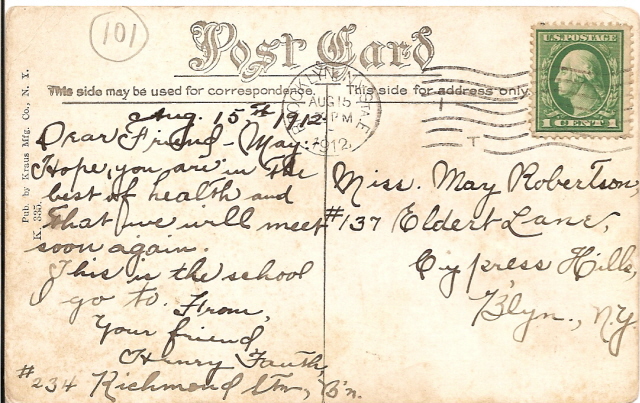 101
Post Card
This side may be used for correspondence.
This side for address only.
U.S. POSTAGE
1 CENT 1
BROOKLYN, N.Y. STATE
AUG 15
PM
1912
T
Pub. by Kraus Mfg. Co., N. Y.
K. 335.
Aug. 15th 1912.
Dear Friend - May:
Hope, you are in the
best of health and
that we will meet
soon again.
This is the school
I go to. From,
Your friend
Henry Fauth,
#234 Richmond St., B'n.
Miss. May Robertson,
#137 Eldert Lane,
Cypress Hills,
B'lyn., N.Y.